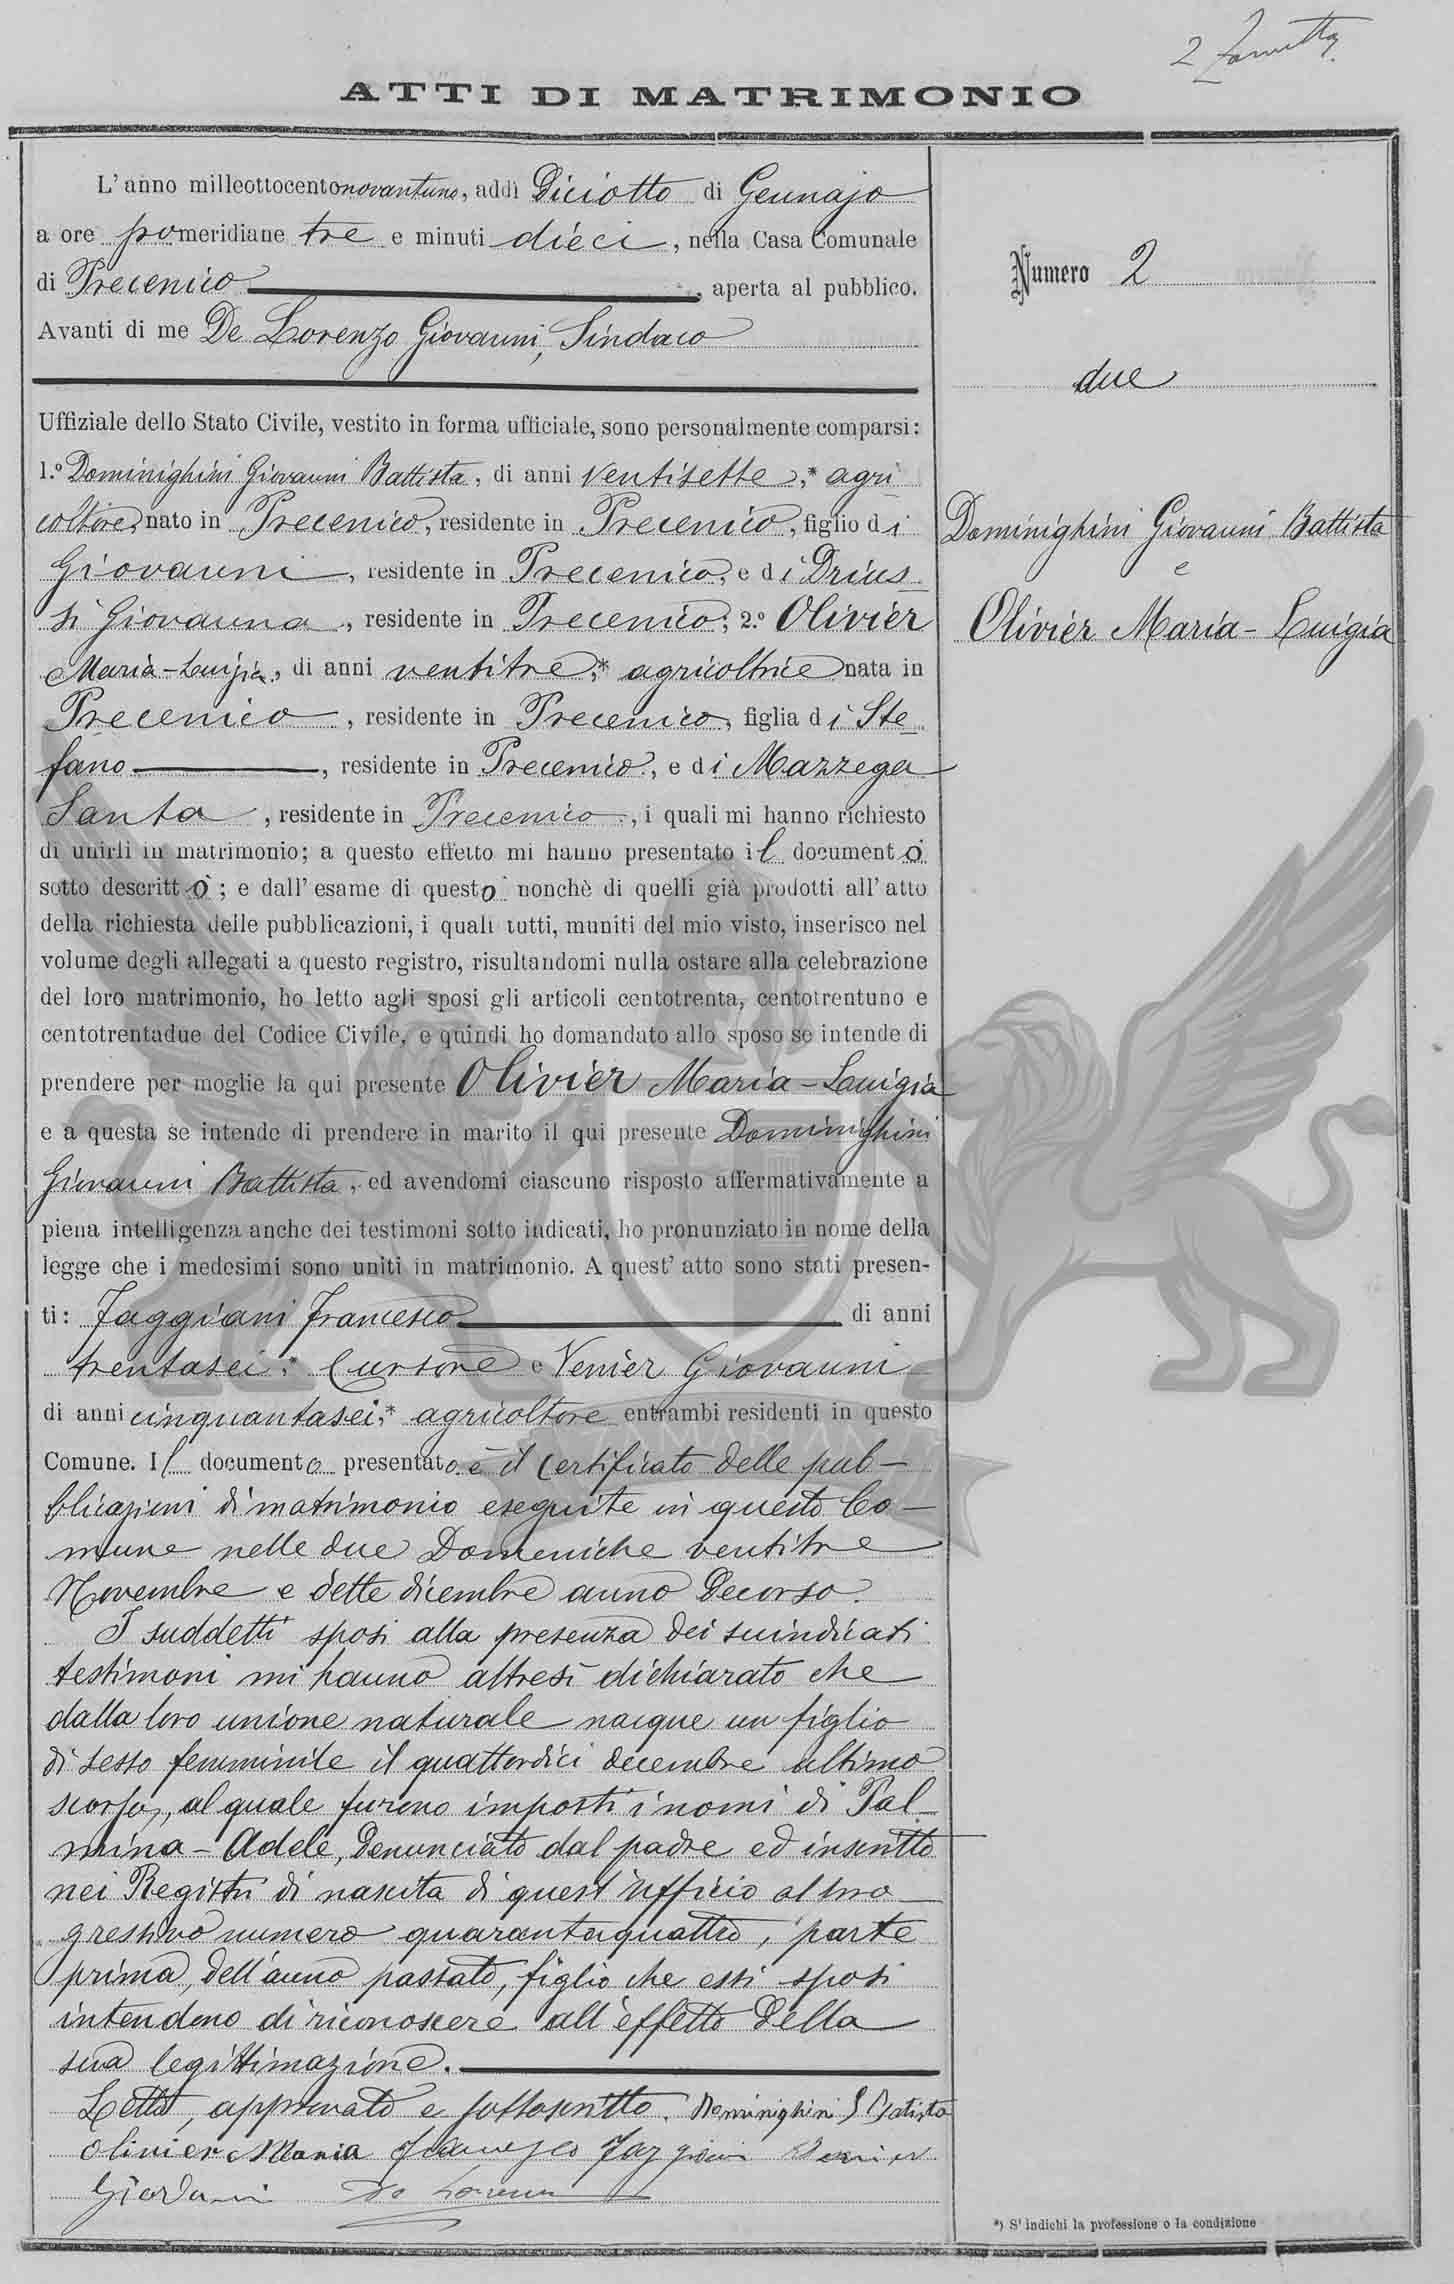 2
ATTI DI MATRIMONIO
L'anno milleottocentonovantuno, addì Diciotto di Gennajo
a ore pomeridiane tre e minuti dieci, nella Casa Comunale
di Precenico, aperta al pubblico.
Avanti di me De Lorenzo Giovanni, Sindaco
Uffiziale dello Stato Civile, vestito in forma ufficiale, sono personalmente comparsi:
1.° Dominighini Giovanni Battista, di anni ventisette,* agri
coltore, nato in Precenico, residente in Precenico, figlio di
Giovanni, residente in Precenico, e di Drius-
si Giovanna, residente in Precenico; 2.° Olivier
Maria-Luigia, di anni ventitre,* agricoltrice nata in
Precenico, residente in Precenico, figlia di Ste-
fano, residente in Precenico, e di Mazzega
Santa, residente in Precenico, i quali mi hanno richiesto
di unirli in matrimonio; a questo effetto mi hanno presentato il documento
sotto descritto; e dall'esame di questo nonchè di quelli già prodotti all'atto
della richiesta delle pubblicazioni, i quali tutti, muniti del mio visto, inserisco nel
volume degli allegati a questo registro, risultandomi nulla ostare alla celebrazione
del loro matrimonio, ho letto agli sposi gli articoli centotrenta, centotrentuno e
centotrentadue del Codice Civile, e quindi ho domandato allo sposo se intende di
prendere per moglie la qui presente Olivier Maria-Luigia
e a questa se intende di prendere in marito il qui presente Dominighini
Giovanni Battista, ed avendomi ciascuno risposto affermativamente a
piena intelligenza anche dei testimoni sotto indicati, ho pronunziato in nome della
legge che i medesimi sono uniti in matrimonio. A quest'atto sono stati presen-
ti: Faggiani Francesco di anni
trentasei,* Cursore e Venier Giovanni
di anni cinquantasei,* agricoltore entrambi residenti in questo
Comune. Il documento presentato è il certificato delle pub-
blicazioni di matrimonio eseguite in questo Co-
mune nelle due Domeniche ventitre
Novembre e sette dicembre anno decorso.
I suddetti sposi alla presenza dei suindicati
testimoni mi hanno altresì dichiarato che
dalla loro unione naturale nacque un figlio
di sesso femminile il quattordici decembre ultimo
scorso, al quale furono imposti i nomi di Pal-
mina-Adele, denunciato dal padre ed inscritto
nei Registri di nascita di quest'ufficio al pro-
gressivo numero quarantaquattro, parte
prima, dell'anno passato, figlio che essi sposi
intendono di riconoscere all'effetto della
sua legittimazione.
Letto, approvato e sottoscritto. Dominighini G Batista
Olivier Maria Francesco Faggiani Venier
Giovani De Lorenzo
Numero 2
due
Dominighini Giovanni Battista
e
Olivier Maria-Luigia
*) S'indichi la professione o la condizione